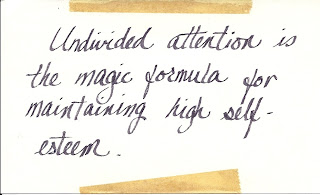 Undivided attention is
the magic formula for
maintaining high self-
esteem.